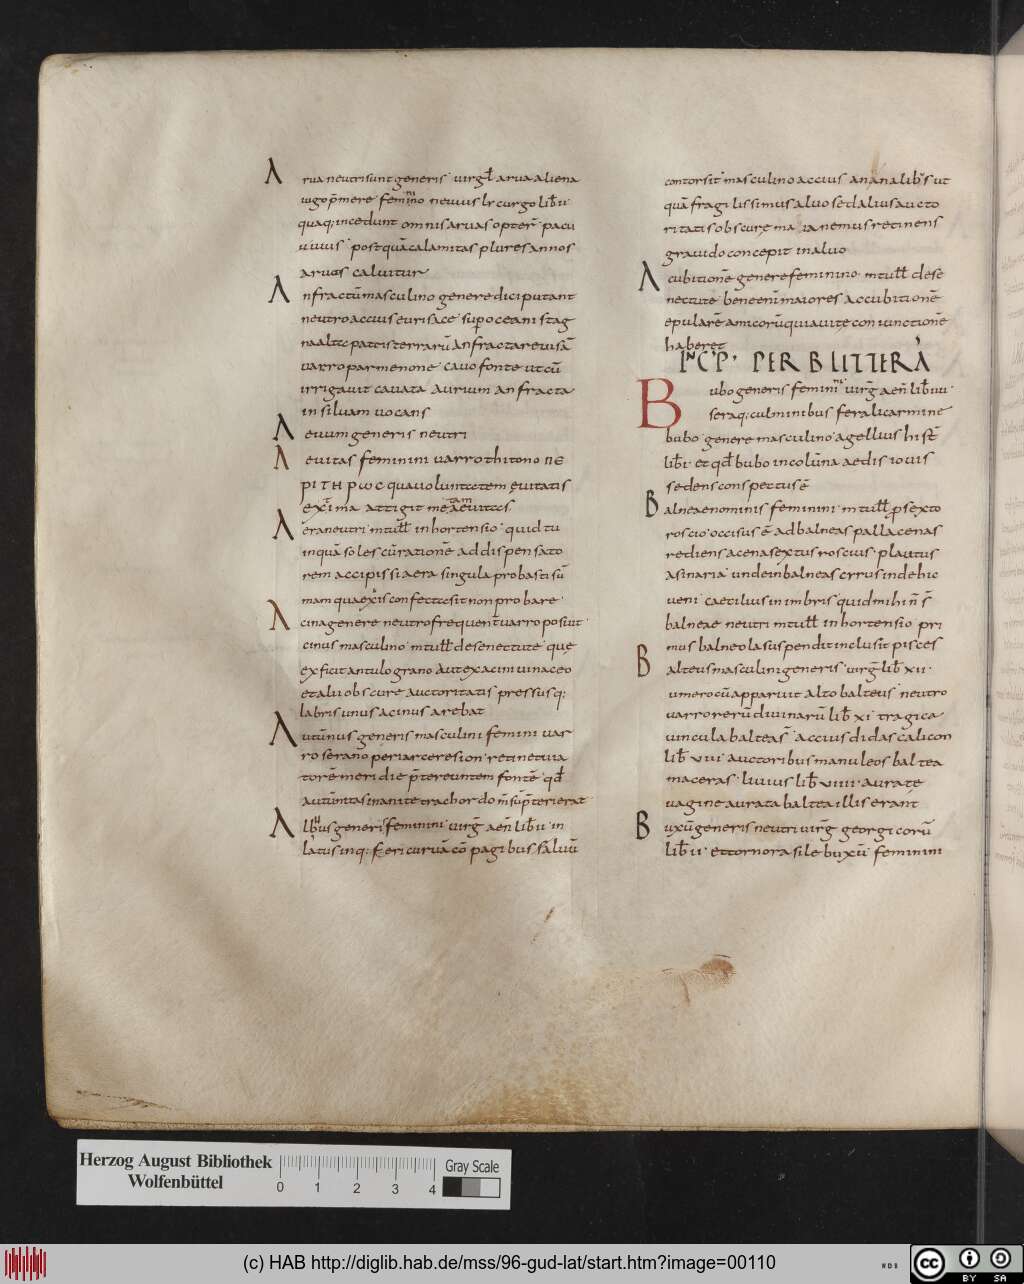 Arva neutri sunt generis virgł arva aliena
iugo p̄mere feminino nevius lycurgo lib̄ ii
quaq; incedunt omnis arvas opter̄ pacu
vivus postquā calamitas plures annos
arvas calvitur
Anfractū masculino genere dici putant
neutro accius eurisace sup oceani stag
na alto patris terrarū anfracta revisā
varro parmenone cavo fonte ut cū
irrigavit cavata aurium anfracta
in silvam vocans
Aevum generis neutri
Aevitas feminini varro thitono ΠΕ
ΡΙ ΓΗΡΩC qua voluntatem ęvitatis
extima attigit metam aevitas
Aera neutri m tull in hortensio quid tu
inquā soles cū rationē ad dispensato
rem accipis si aera singula probasti sū
mam quae ex is confecta sit non probare
Acina genere neutro frequent varro posuit
cinus masculino m tull de senectute quę
ex fici tantulo grano aut ex acini vinaceo
et alii obscure auctoritatis pressusq;
labris unus acinus arebat
Autūnus generis masculini femini var
ro serano peri archeresion retinetvia
torē meridie p̄tereuntem fontē qd̄
autūnitas inanite trachordom sup̄terierat
Albus generis feminini virg̃ aen̄ lib̄ ii in
latus inq: feri curvā cō pagibus alvū
contorsit masculino accius an analib;s ut
quā fragilissimus alvo sed alius aucto
ritatis obscure ma ia nemus retinens
gravido concepit in alvo
Accubitionē genere feminino m tull de se
nectute bene enī maiores accubitionē
epularē amicorū quia vitę coniunctionē
haberet
INCP PER B LITTERĀ
Bubo generis feminini virg̃ aen̄ lib̄ iiii
seraq; culminibus ferali carmine
bubo genere masculino agellius hist̄
lib̄ i et qd̄ bubo in colūna aedis iovis
sedens conspectus ē
Balneae nominis feminini m tull p sexto
roscio occisus ē ad balneas pallacenas
rediens a cena sextus roscius plautus
asinaria unde in balneas crrus inde hic
veni caecilius in imbris quid mihi n̄ s̄
balneae neutri m tull in hortensio pri
mus balneola suspendit inclusit pisces
Balteus masculini generis virg̃ lib̄ xii
umero cū apparuit alto balteus neutro
varro rerū divinarū lib̄ xi tragica
vincula balteas accius didascalicon
lib̄ viii auctoribus manuleos baltea
maceras livius lib̄ viiii auratę
vagine aurata baltea illis erant
Buxū generis neutri virg̃ georgicorū
lib̄ ii et torno rasile buxū feminini
Herzog August Bibliothek
Wolfenbüttel
0 1 2 3 4
Gray Scale
(c) HAB http://diglib.hab.de/mss/96-gud-lat/start.htm?image=00110
WDB
cc BY SA